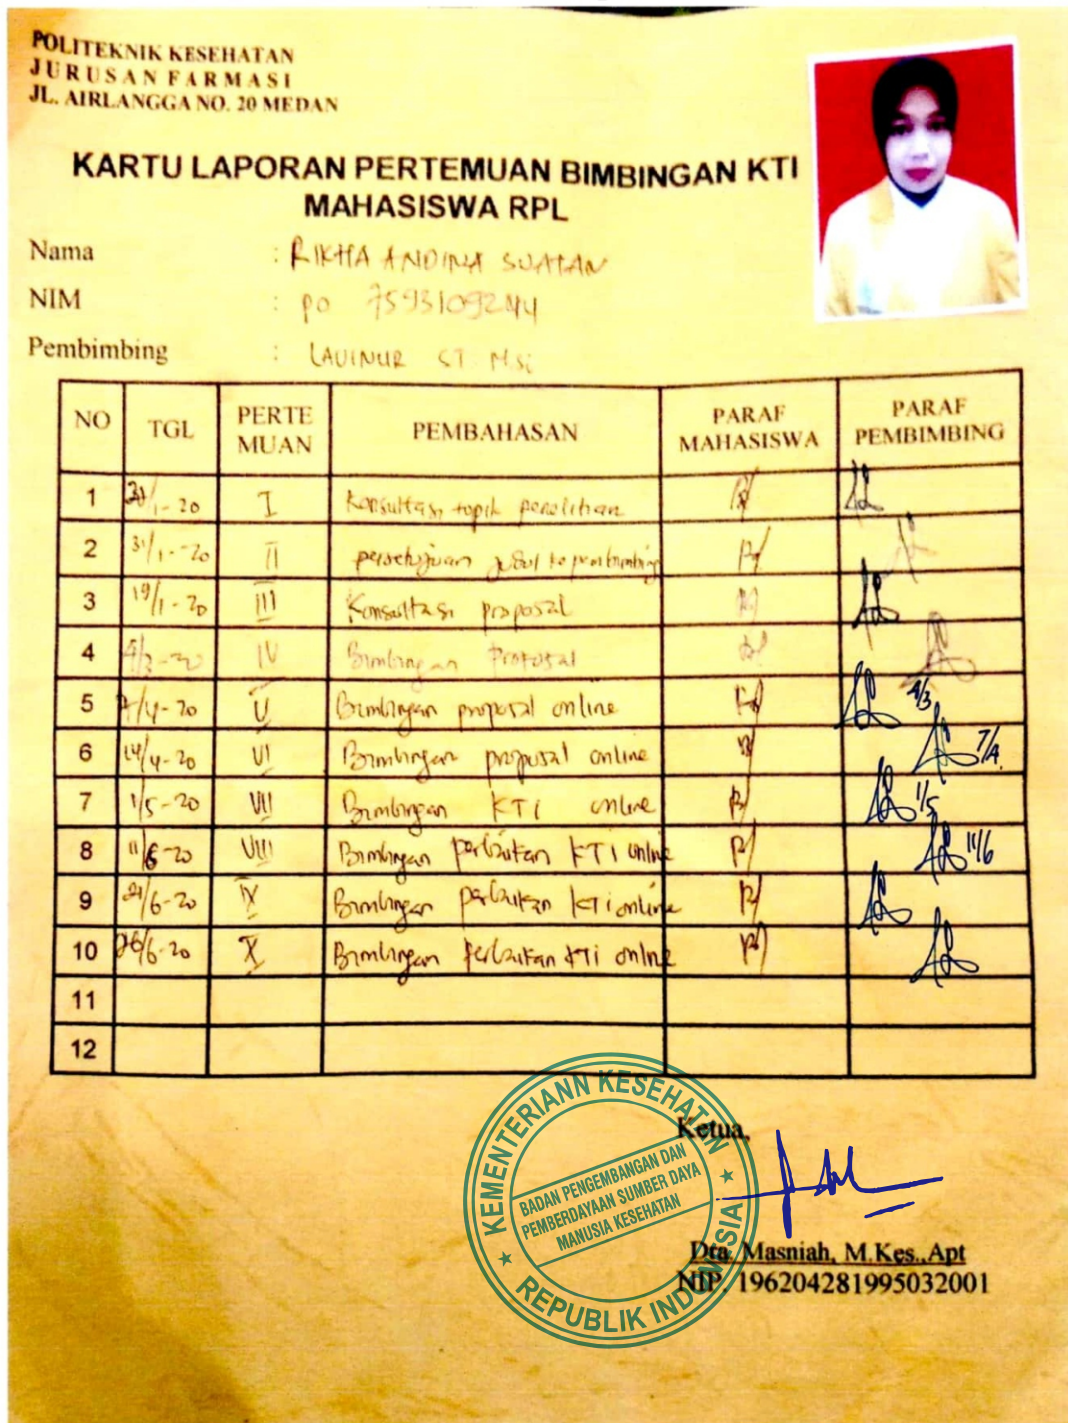 POLITEKNIK KESEHATAN
JURUSAN FARMASI
JL. AIRLANGGA NO. 20 MEDAN
KARTU LAPORAN PERTEMUAN BIMBINGAN KTI
MAHASISWA RPL
Nama : RIKHA ANDINA
NIM : PO 7593109244
Pembimbing : LAVINUR ST. M.Si
NO TGL PERTE MUAN PEMBAHASAN PARAF MAHASISWA PARAF PEMBIMBING
1 /1-20 I Konsultasi topik penelitian
2 31/1-20 II persetujuan judul ke pembimbing
3 19/1-20 III Konsultasi proposal
4 IV Bimbingan Proposal
5 7/4-20 V Bimbingan proposal online 4/3
6 14/4-20 VI Bimbingan proposal online 7/4.
7 1/5-20 VII Bimbingan KTI online 1/5
8 11/6-20 VIII Bimbingan perbaikan KTI online 11/6
9 /6-20 IX Bimbingan perbaikan KTI online
10 26/6-20 X Bimbingan perbaikan KTI online
11
12
KEMENTERIANN KESEHATAN
BADAN PENGEMBANGAN DAN
PEMBERDAYAAN SUMBER DAYA
MANUSIA KESEHATAN
REPUBLIK INDONESIA
Ketua,
Masniah, M.Kes.,Apt
NIP. 196204281995032001